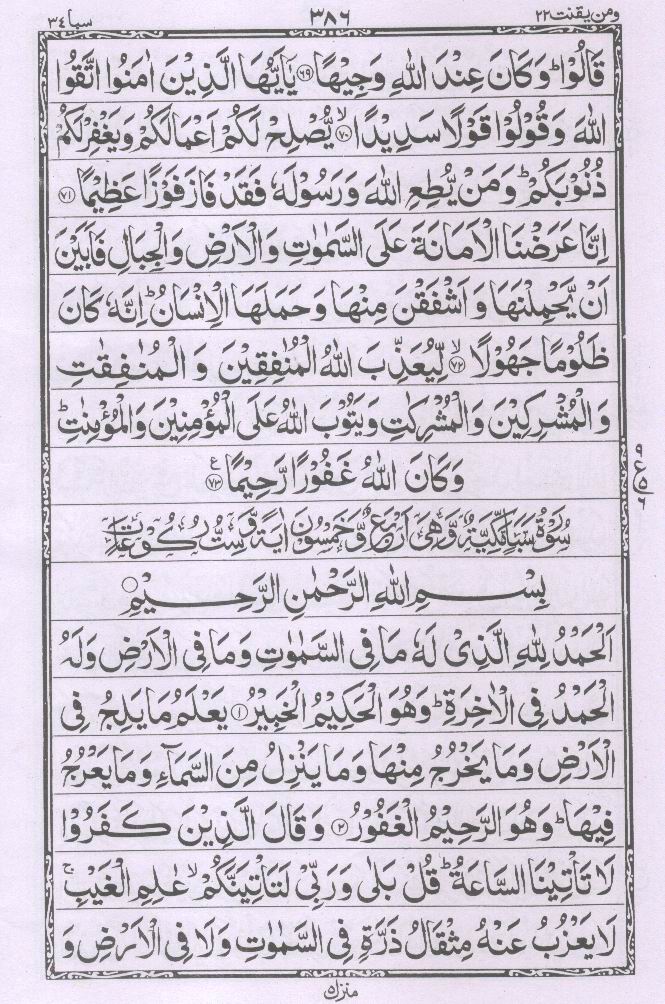 ومن يقنت ٢٢ ٣٨٦ سبا ٣٤
قَالُوْا ؕ وَكَانَ عِنْدَ اللّٰهِ وَجِيْهًا ﴿۶۹﴾ يٰۤاَيُّهَا الَّذِيْنَ اٰمَنُوا اتَّقُوا
اللّٰهَ وَقُوْلُوْا قَوْلًا سَدِيْدًا ﴿۷۰﴾ۙ يُّصْلِحْ لَكُمْ اَعْمَالَكُمْ وَيَغْفِرْ لَكُمْ
ذُنُوْبَكُمْ ؕ وَمَنْ يُّطِعِ اللّٰهَ وَرَسُوْلَهٗ فَقَدْ فَازَ فَوْزًا عَظِيْمًا ﴿۷۱﴾
اِنَّا عَرَضْنَا الْاَمَانَةَ عَلَى السَّمٰوٰتِ وَالْاَرْضِ وَالْجِبَالِ فَاَبَيْنَ
اَنْ يَّحْمِلْنَهَا وَاَشْفَقْنَ مِنْهَا وَحَمَلَهَا الْاِنْسَانُ ؕ اِنَّهٗ كَانَ
ظَلُوْمًا جَهُوْلًا ﴿۷۲﴾ۙ لِّيُعَذِّبَ اللّٰهُ الْمُنٰفِقِيْنَ وَالْمُنٰفِقٰتِ
وَالْمُشْرِكِيْنَ وَالْمُشْرِكٰتِ وَيَتُوْبَ اللّٰهُ عَلَى الْمُؤْمِنِيْنَ وَالْمُؤْمِنٰتِ ؕ
وَكَانَ اللّٰهُ غَفُوْرًا رَّحِيْمًا ﴿۷۳﴾ ع
سُوْرَةُ سَبَاٍ مَّكِّيَّةٌ وَّهِيَ اَرْبَعٌ وَّخَمْسُوْنَ اٰيَةً وَّسِتُّ رُكُوْعَاتٍ
بِسْمِ اللّٰهِ الرَّحْمٰنِ الرَّحِيْمِ
اَلْحَمْدُ لِلّٰهِ الَّذِيْ لَهٗ مَا فِي السَّمٰوٰتِ وَمَا فِي الْاَرْضِ وَلَهُ
الْحَمْدُ فِي الْاٰخِرَةِ ؕ وَهُوَ الْحَكِيْمُ الْخَبِيْرُ ﴿۱﴾ يَعْلَمُ مَا يَلِجُ فِي
الْاَرْضِ وَمَا يَخْرُجُ مِنْهَا وَمَا يَنْزِلُ مِنَ السَّمَآءِ وَمَا يَعْرُجُ
فِيْهَا ؕ وَهُوَ الرَّحِيْمُ الْغَفُوْرُ ﴿۲﴾ وَقَالَ الَّذِيْنَ كَفَرُوْا
لَا تَاْتِيْنَا السَّاعَةُ ؕ قُلْ بَلٰى وَرَبِّيْ لَتَاْتِيَنَّكُمْ ۙ عٰلِمِ الْغَيْبِ ۚ
لَا يَعْزُبُ عَنْهُ مِثْقَالُ ذَرَّةٍ فِي السَّمٰوٰتِ وَلَا فِي الْاَرْضِ وَ
منزل ٥